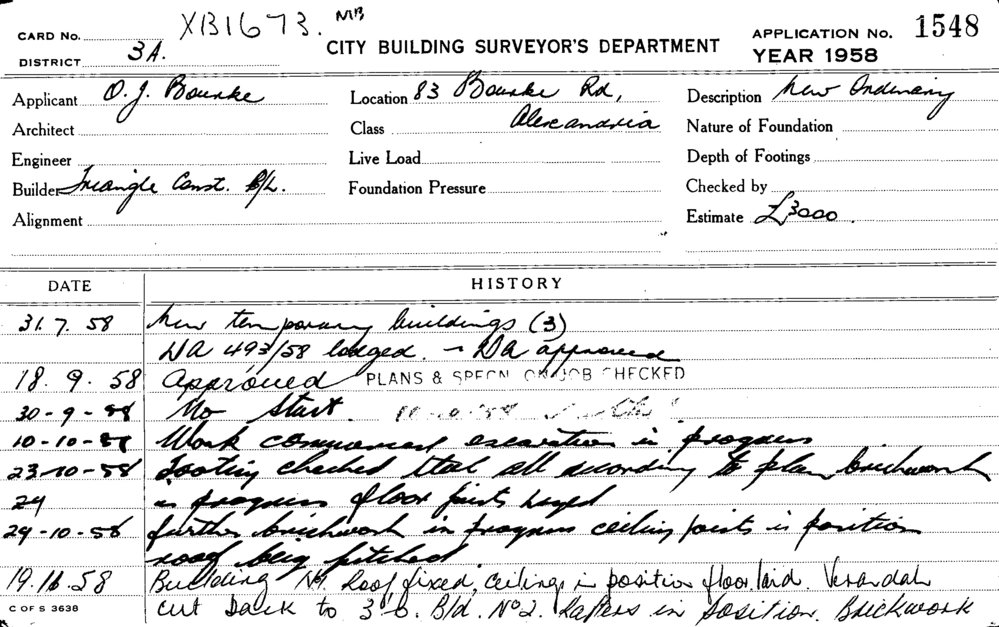 CARD No. XB1673. MB
CITY BUILDING SURVEYOR'S DEPARTMENT
APPLICATION No. 1548
YEAR 1958
DISTRICT 3A.
Applicant O. J. Bourke
Location 83 Bourke Rd, Alexandria
Description New Ordinary
Architect
Class
Nature of Foundation
Engineer
Live Load
Depth of Footings
Builder Triangle Const. P/L.
Foundation Pressure
Checked by
Alignment
Estimate £3000.
DATE HISTORY
31. 7. 58 New temporary buildings (3)
DA 493/58 lodged. – DA approved
18. 9. 58 Approved PLANS & SPECN. ON JOB CHECKED
30-9-58 No start. 10-10-58
10-10-58 Work commenced excavation in progress
23-10-58 footing checked steel all according to plan brickwork
24 in progress floor joists layed
29-10-58 further brickwork in progress ceiling joists in position
roof being pitched.
58 Building No 1. Roof fixed, ceilings in position floor laid. Verandah
C OF S 3638
cut back to 3'6. Bld. No 2. Rafters in position. Brickwork